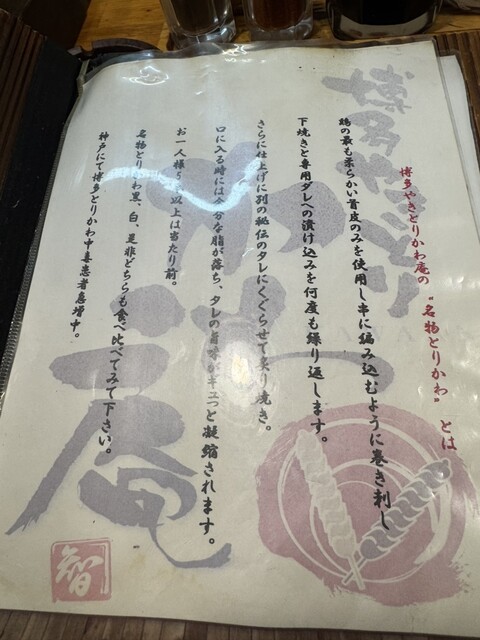 博多やきとりかわ庵の〝名物とりかわ〟とは
鶏の最も柔らかい首皮のみを使用し串に編み込むように巻き刺し
下焼きと専用ダレへの漬け込みを何度も繰り返します。
さらに仕上げに別の秘伝のタレにくぐらせて炙り焼き。
口に入る時には余分な脂が落ち、タレの旨味がギュっと凝縮されます。
お一人様5本以上は当たり前。
名物とりかわ黒、白、是非どちらも食べ比べてみて下さい。
神戸にて博多とりかわ中毒患者急増中。
博多やきとり
かわ庵
智